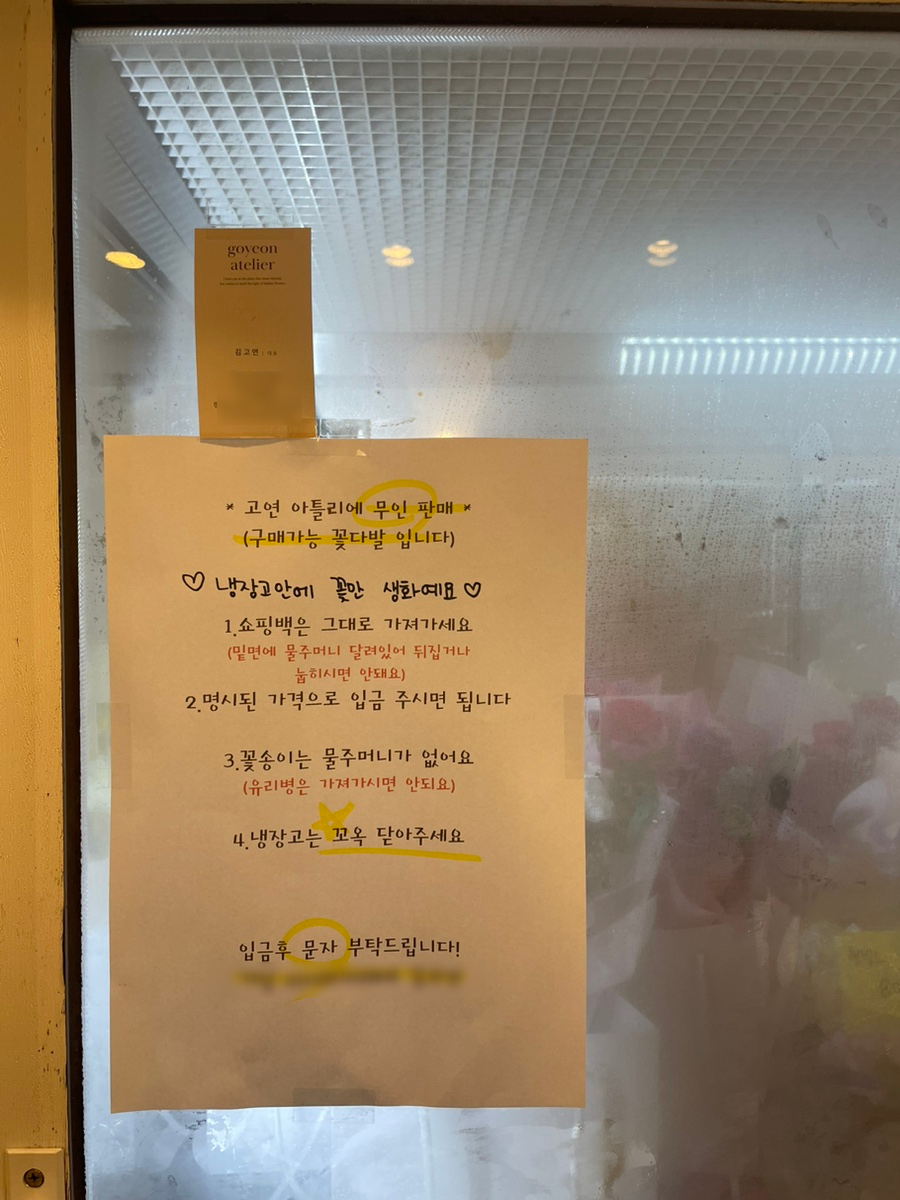 goyeon
atelier
김고연 | 대표
* 고연 아틀리에 무인 판매 *
(구매가능 꽃다발 입니다)
♡ 냉장고안에 꽃만 생화예요 ♡
1.쇼핑백은 그대로 가져가세요
(밑면에 물주머니 달려있어 뒤집거나
눕히시면 안돼요)
2.명시된 가격으로 입금 주시면 됩니다
3.꽃송이는 물주머니가 없어요
(유리병은 가져가시면 안되요)
4.냉장고는 꼬옥 닫아주세요
입금후 문자 부탁드립니다!